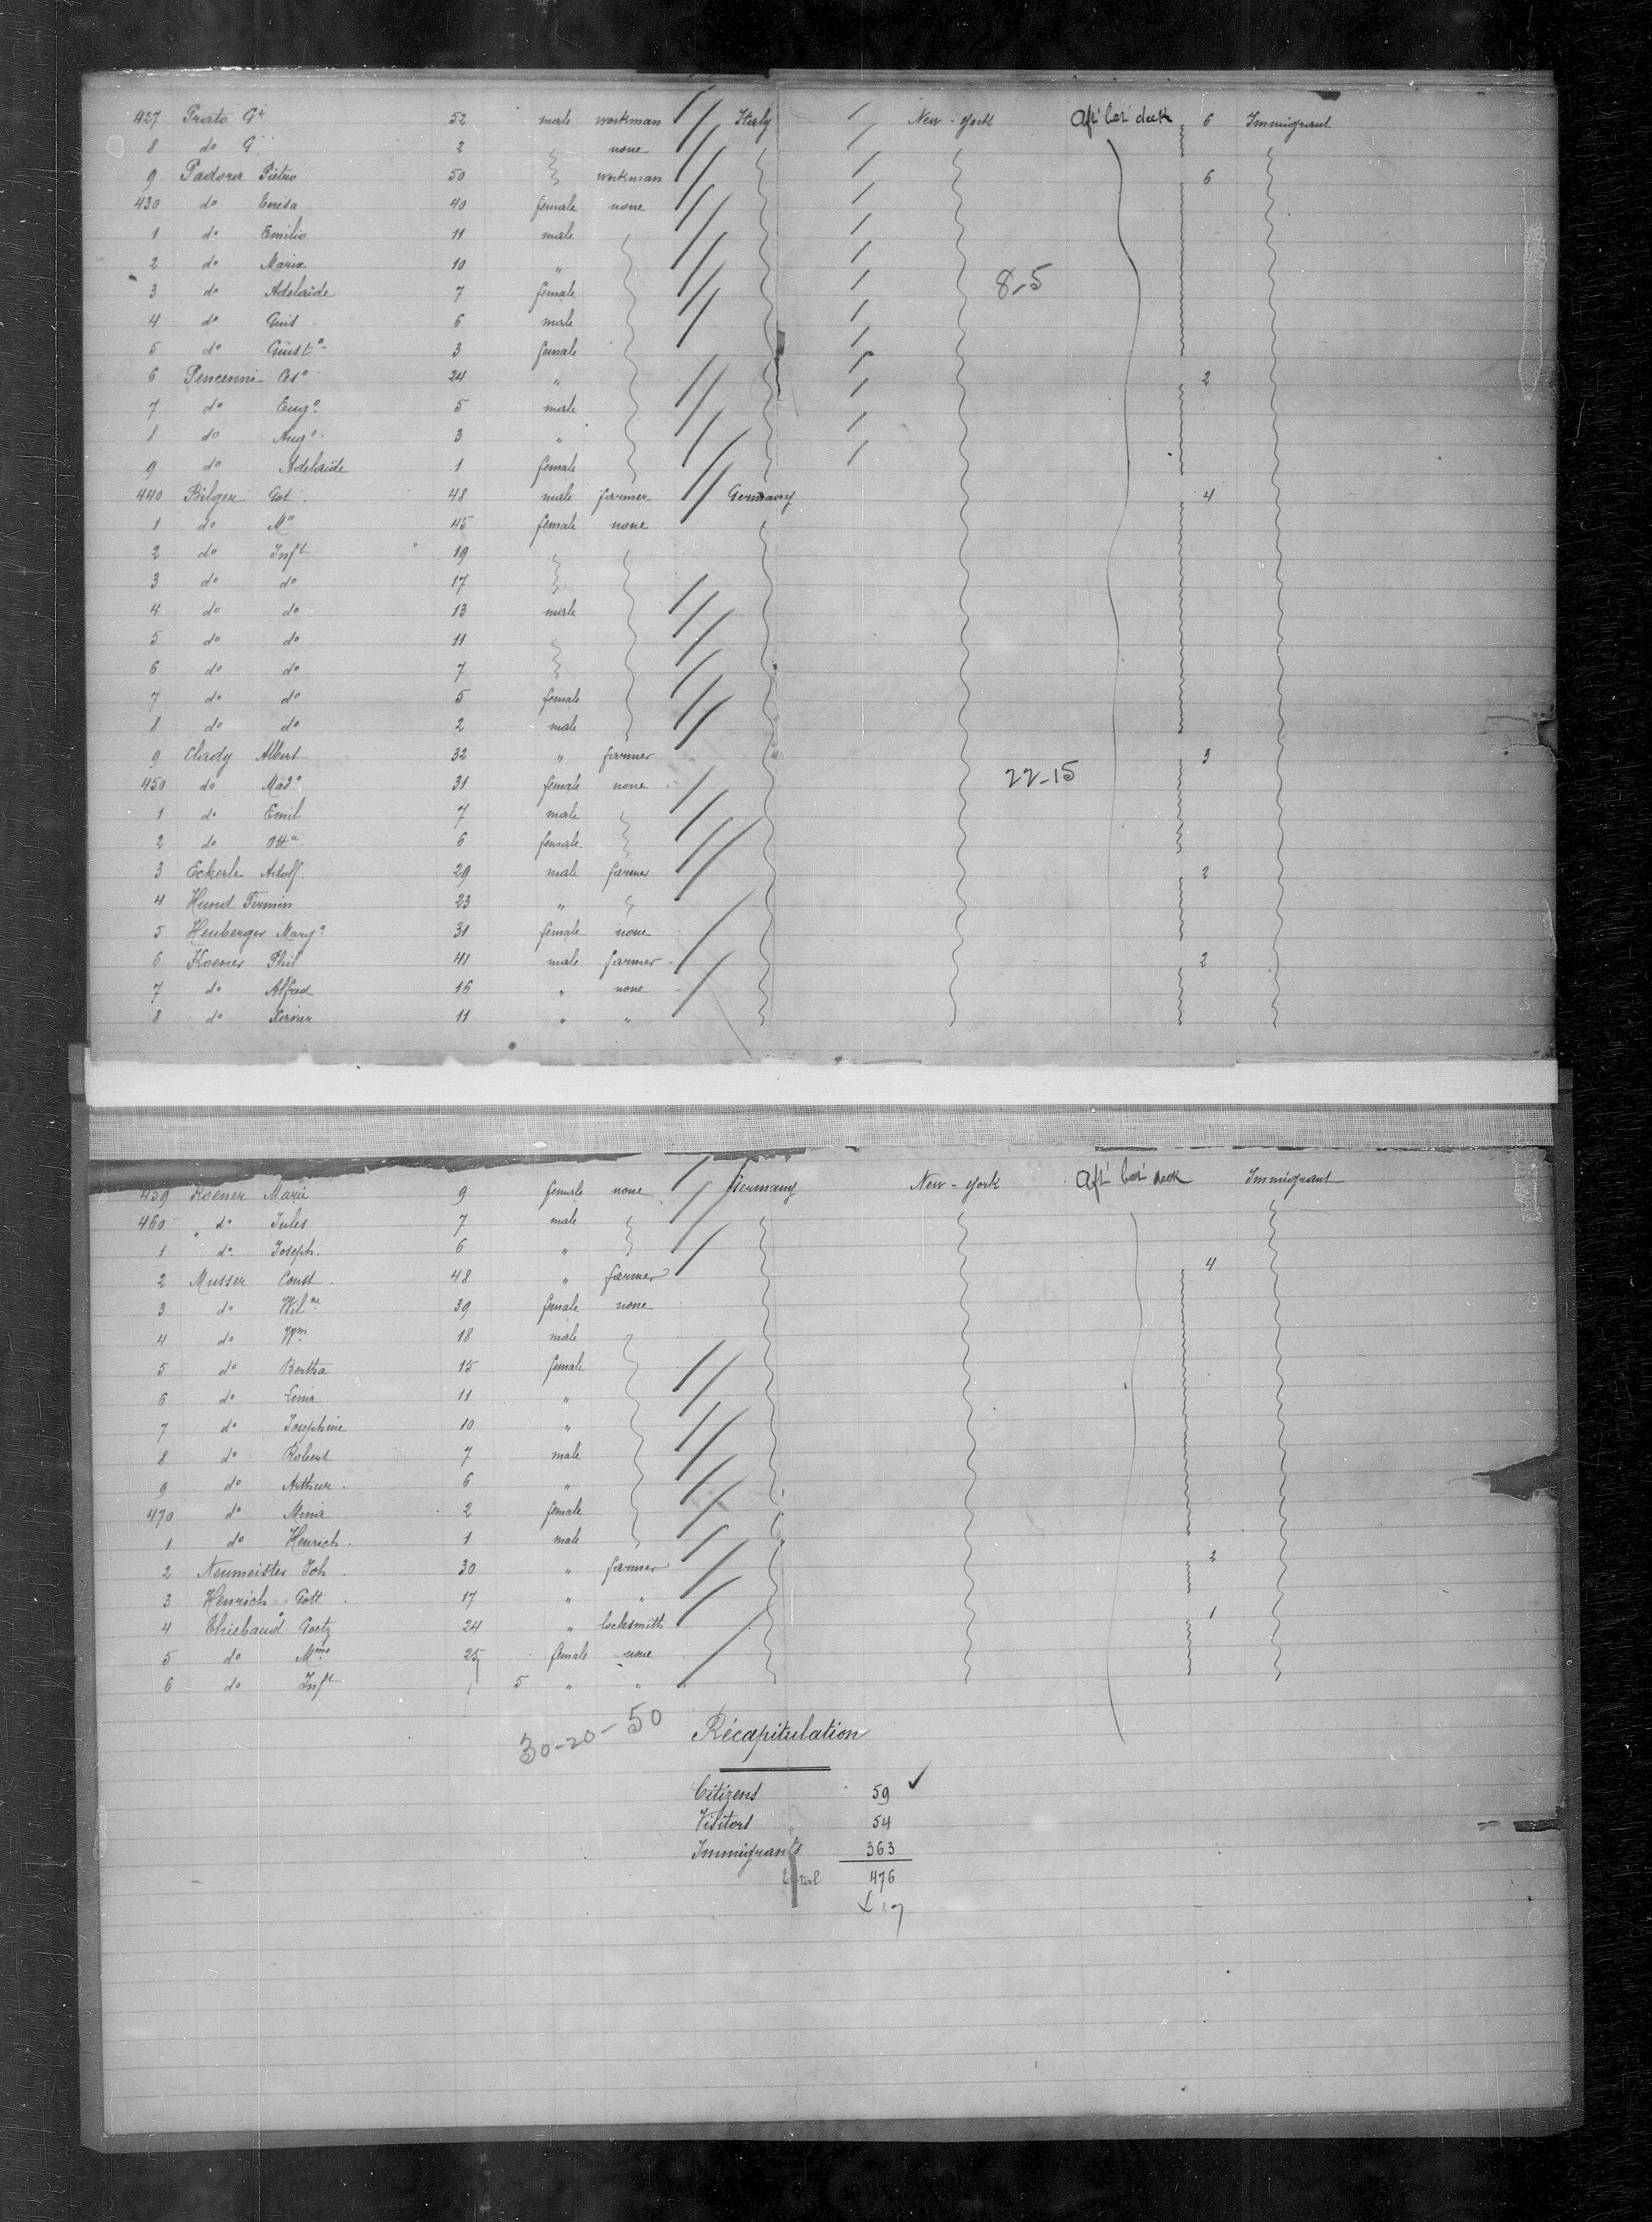 427 Prato Gᵃ 52 male workman Italy New-York Aft' bet' deck 6 Immigrant
8 do G 2 none
9 Padora Pietro 50 workman 6
430 do 40 female none
1 do Emilio 11 male
2 do Maria 10 "
3 do Adelaide 7 female 8-5
4 do 6 male
5 do Giustᵃ 3 female
6 Pencenni 24 " 2
7 do Eugº 5 male
8 do Augº 3 "
9 do Adelaide 1 female
440 Bilger Gst. 48 male farmer Germany 4
1 do Mᵃ 45 female none
2 do Infᵗ 19
3 do do 17
4 do do 13 male
5 do do 11
6 do do 7
7 do do 5 female
8 do do 2 male
9 Clady Albert 32 " farmer 3
450 do Madᵃ 31 female none 22-15
1 do Emil 7 male
2 do 6 female
3 Eckerle Adolf. 29 male farmer 2
4 Hund Firmin 23 "
5 Heuberger Margᵃ 31 female none
6 Koener Phil 41 male farmer 2
7 do Alfred 16 " none
8 do Xavier 11 " "
459 Koener Marie 9 female none Germany New-York Aft' bet' deck Immigrant
460 do Jules 7 male
1 do Joseph. 6 "
2 Musser Const. 48 " farmer 4
3 do Wilⁿᵉ 39 female none
4 do Wᵐ 18 male
5 do Bertha 15 female
6 do 11 "
7 do Josephine 10 "
8 do Robert 7 male
9 do Arthur. 6 "
470 do Mina 2 female
1 do Henrich. 1 male
2 Neumeister Joh. 30 " farmer 2
3 Henrich Gott. 17 " "
4 Thiebaud Goetz 24 " locksmith 1
5 do Mᵐᵉ 25 female none
6 do Infᵗ 5 " "
30-20-50 Récapitulation
Citizens 59 ✓
Visitors 54
Immigrants 363
total 476